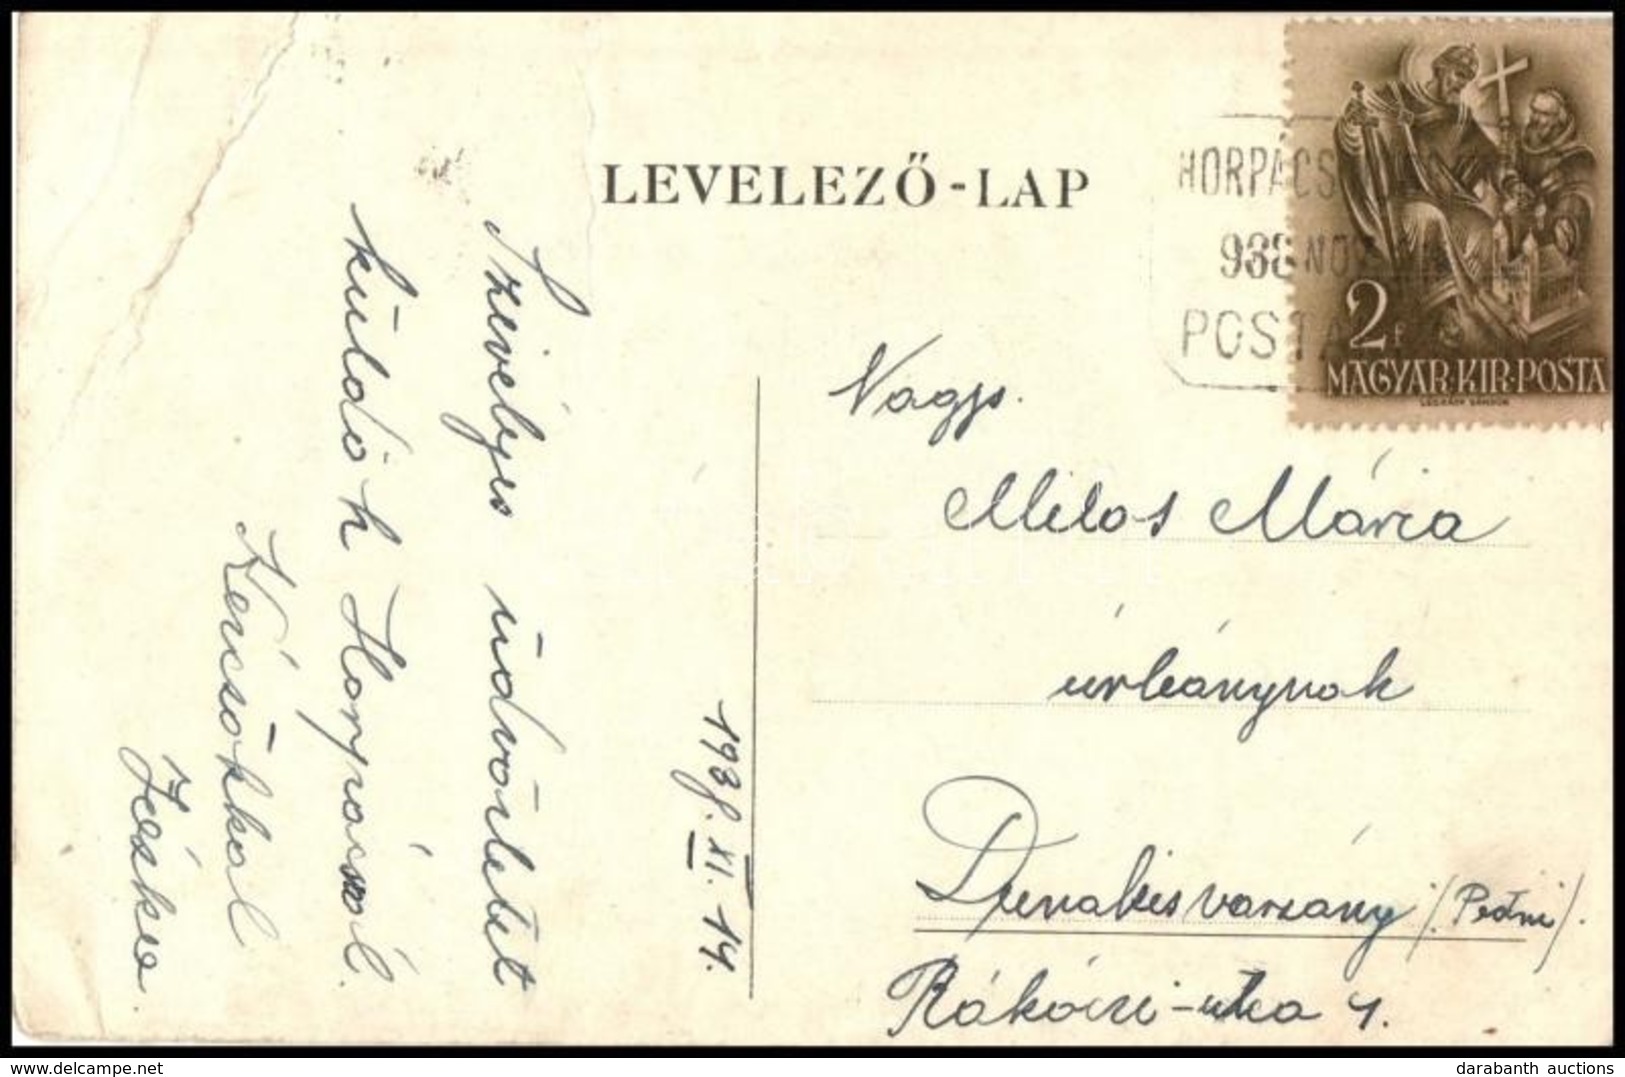 LEVELEZŐ-LAP
HORPÁCS
938 NOV
POSTA
2f
MAGYAR·KIR·POSTA
LÉGRÁDY SÁNDOR
Szívélyes üdvözletet
küldök Horpácsról.
Kézcsókkal
Jóska.
1938. XI. 14.
Nagys.
Milos Mária
úrleánynak
Dunakisvarsány
Rákóczi-utca 1.
delcampe.net
darabanth auctions